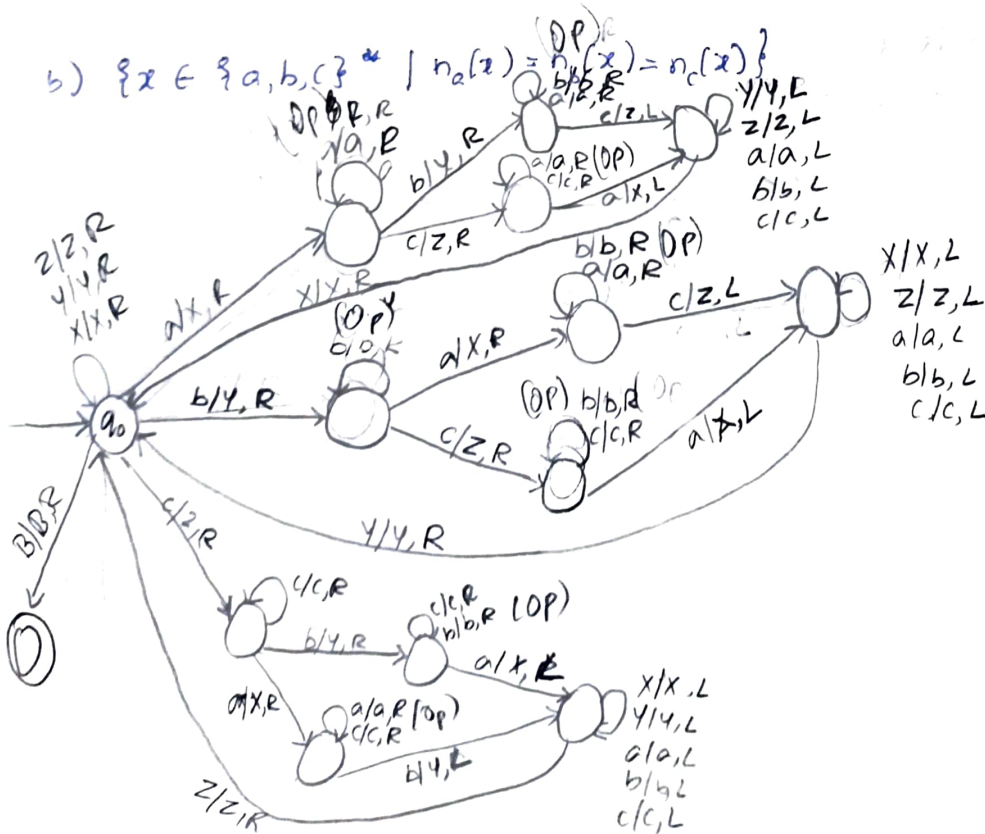 b) {x ∈ {a,b,c}* | n_a(x) = n_b(x) = n_c(x)}
(OP)
b/b,R
a/a,R
c/z,L
Y/Y,L
Z/Z,L
a/a,L
b/b,L
c/c,L
a,R
b/Y,R
a/a,R (OP)
c/c,R
a/X,L
c/Z,R
Z/Z,R
Y/Y,R
X/X,R
a/X,R
X/X,R
b/b,R (OP)
a/a,R
c/Z,L
X/X,L
Z/Z,L
a/a,L
b/b,L
c/c,L
(OP)
a/X,R
q₀
b/Y,R
(OP) b/b,R
c/c,R
c/Z,R
L
Y/Y,R
B/B,R
c/Z,R
c/c,R
c/c,R
b/b,R (OP)
b/Y,R
a/X,
a/X,R
a/a,R (OP)
c/c,R
b/Y,L
X/X,L
Y/Y,L
a/a,L
b/b,L
c/c,L
Z/Z,R